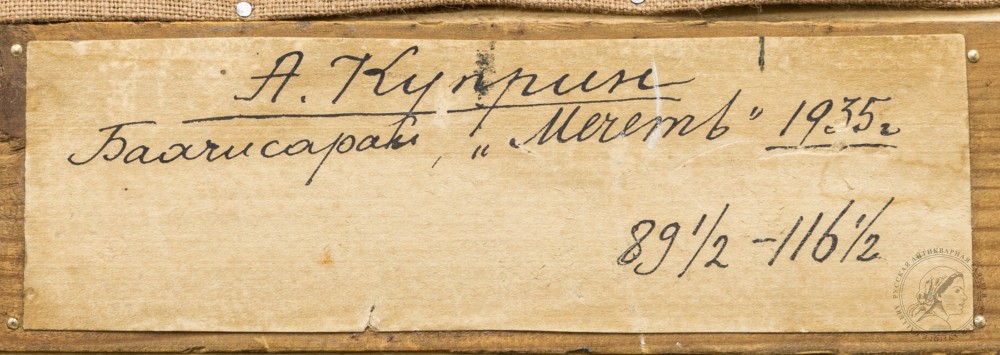 А. Куприн
Баачисарай, „Мечеть" 1935 г
89 1/2 – 116 1/2
РУССКАЯ АНТИКВАРНАЯ ГАЛЕРЕЯ